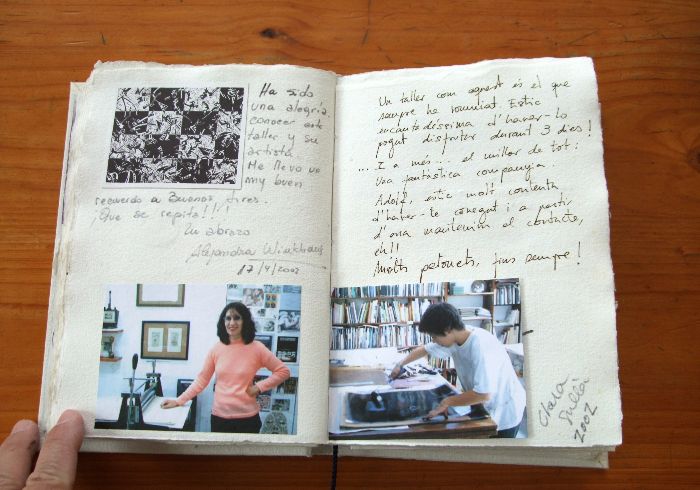 Ha sido
una alegría
conocer este
taller y su
artista.
Me llevo un
muy buen
recuerdo a Buenos Aires.
¡Que se repita!!!
Un abrazo
Alejandra
17/4/2002
Un taller com aquest és el que
sempre he somiat. Estic
encantadíssima d'haver-lo
pogut disfrutar durant 3 dies!
... I a més... el millor de tot:
una fantàstica companyia.
Adolf, estic molt contenta
d'haver-te conegut i a partir
d'ara mantenim el contacte,
eh!!
Molts petonets, fins sempre!
Clara
Julià
2002